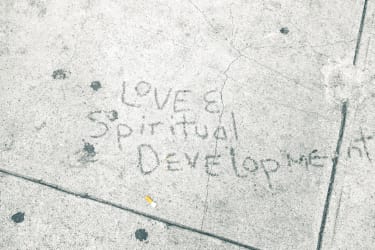 LOVE &
Spiritual
DEVElopMEnt